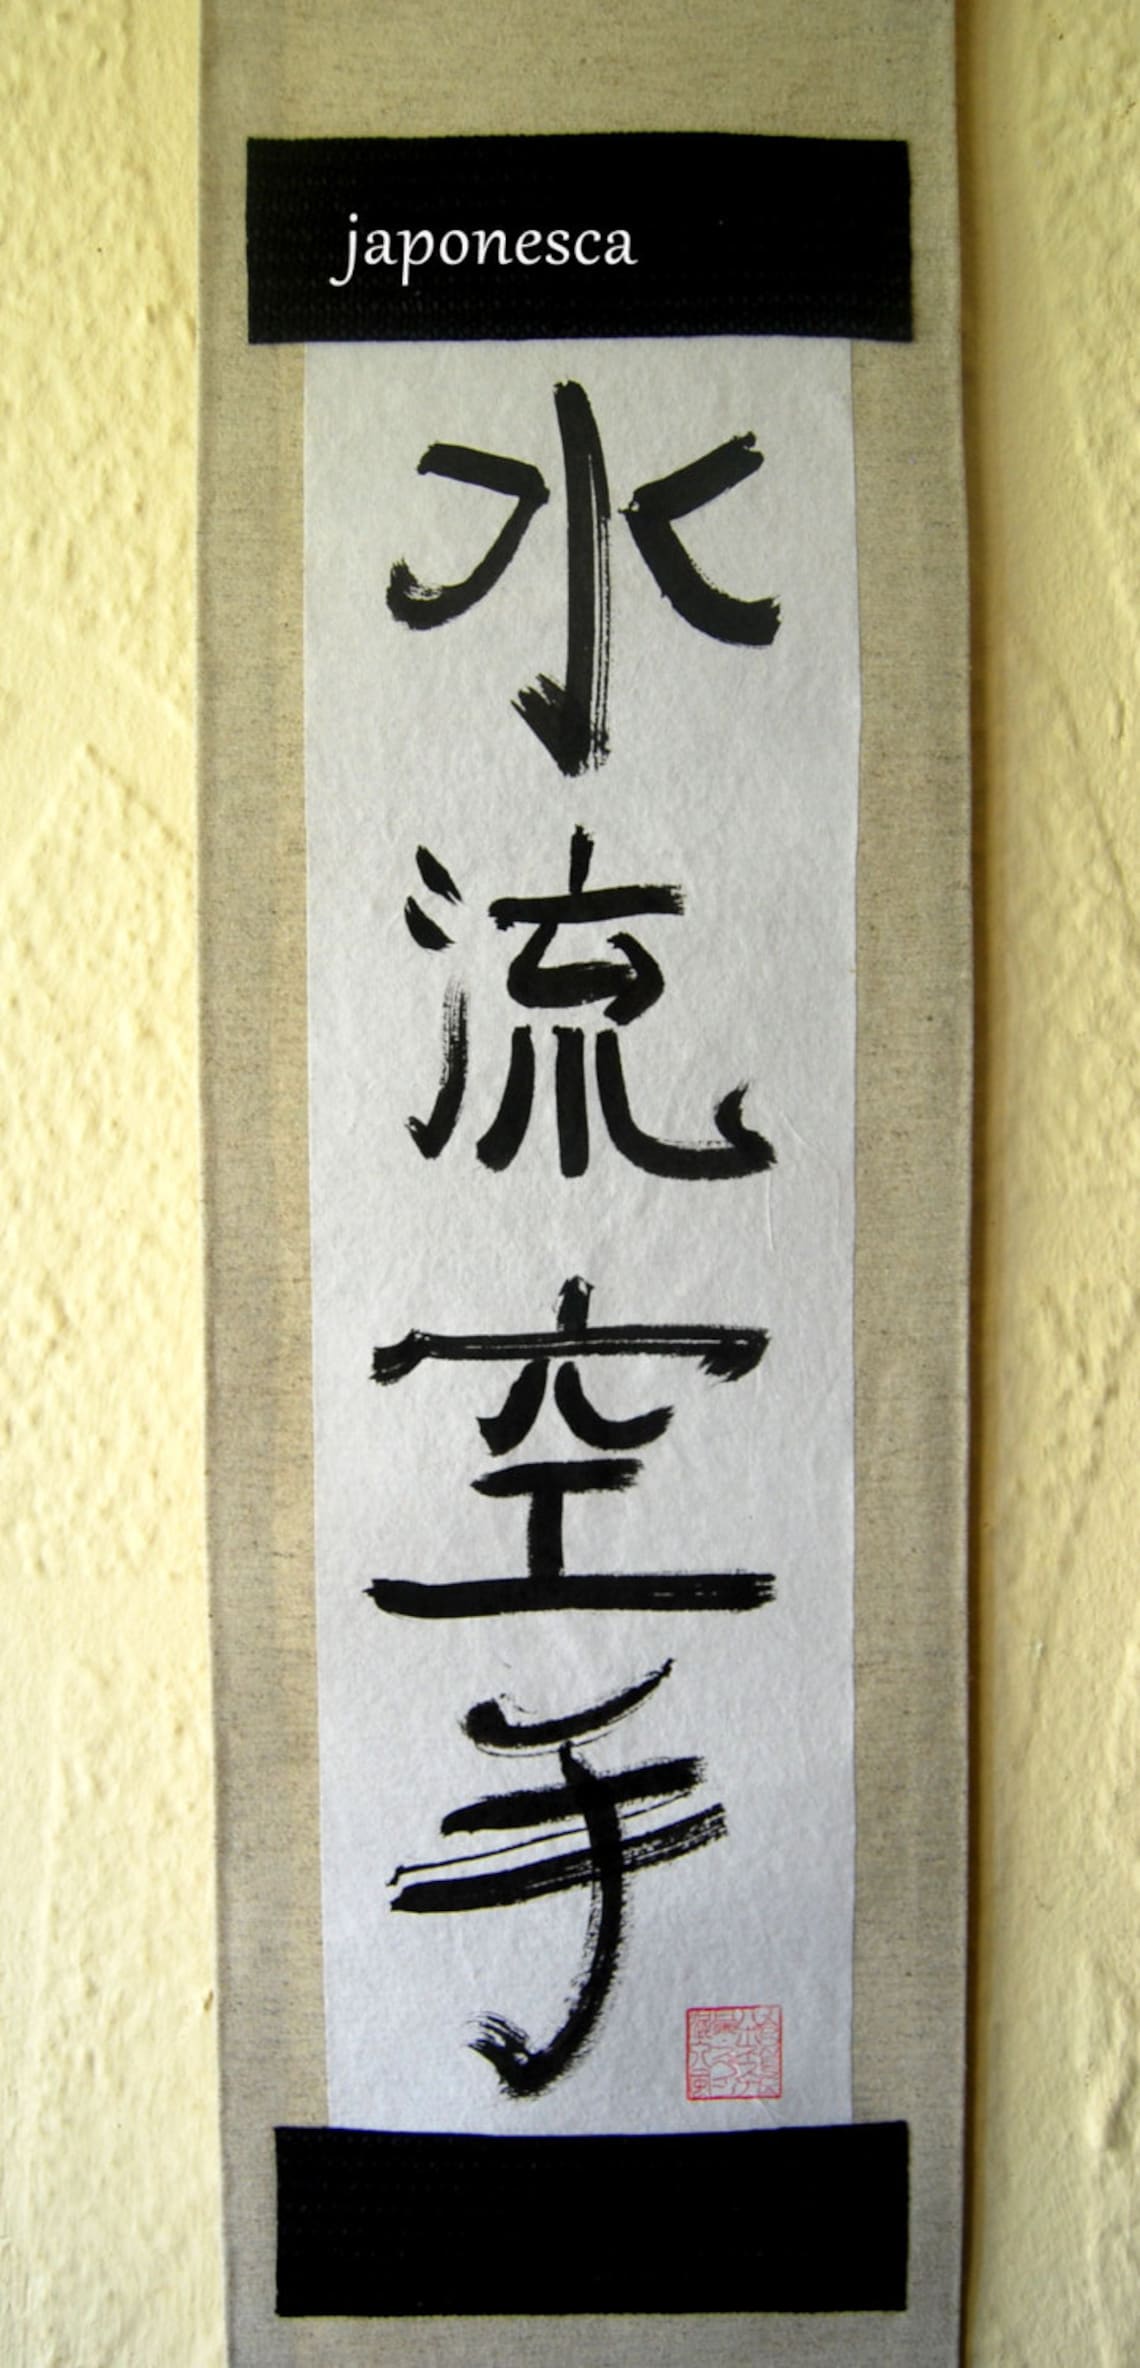 japonesca
水流空手